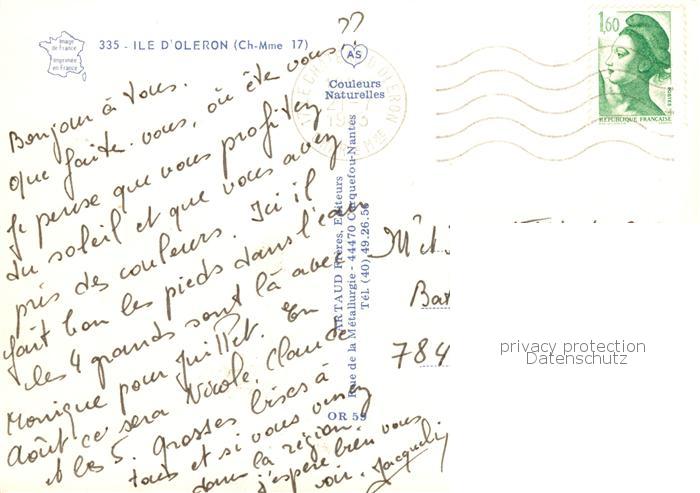 335 - ILE D'OLERON (Ch-Mme 17)
Image
de France
Imprimée
en France
AS
Couleurs
Naturelles
1,60
POSTES
REPUBLIQUE FRANÇAISE
D'OLERON
ARTAUD Frères, Editeurs
Rue de la Métallurgie - 44470 Carquefou-Nantes
Tél. (40) 49.26.56
OR 59
??
Bonjour à tous.
que faites-vous, où êtes vous?
Je pense que vous profitez
du soleil et que vous avez
pris des couleurs. Ici il
fait bon les pieds dans l'eau
les 4 grands sont là avec
Monique pour juillet. En
Août ce sera Nicole, Claude
et les 5. Grosses bises à
tous et si vous venez
dans la région.
j'espère bien vous
voir. Jacqueline
784
privacy protection
Datenschutz